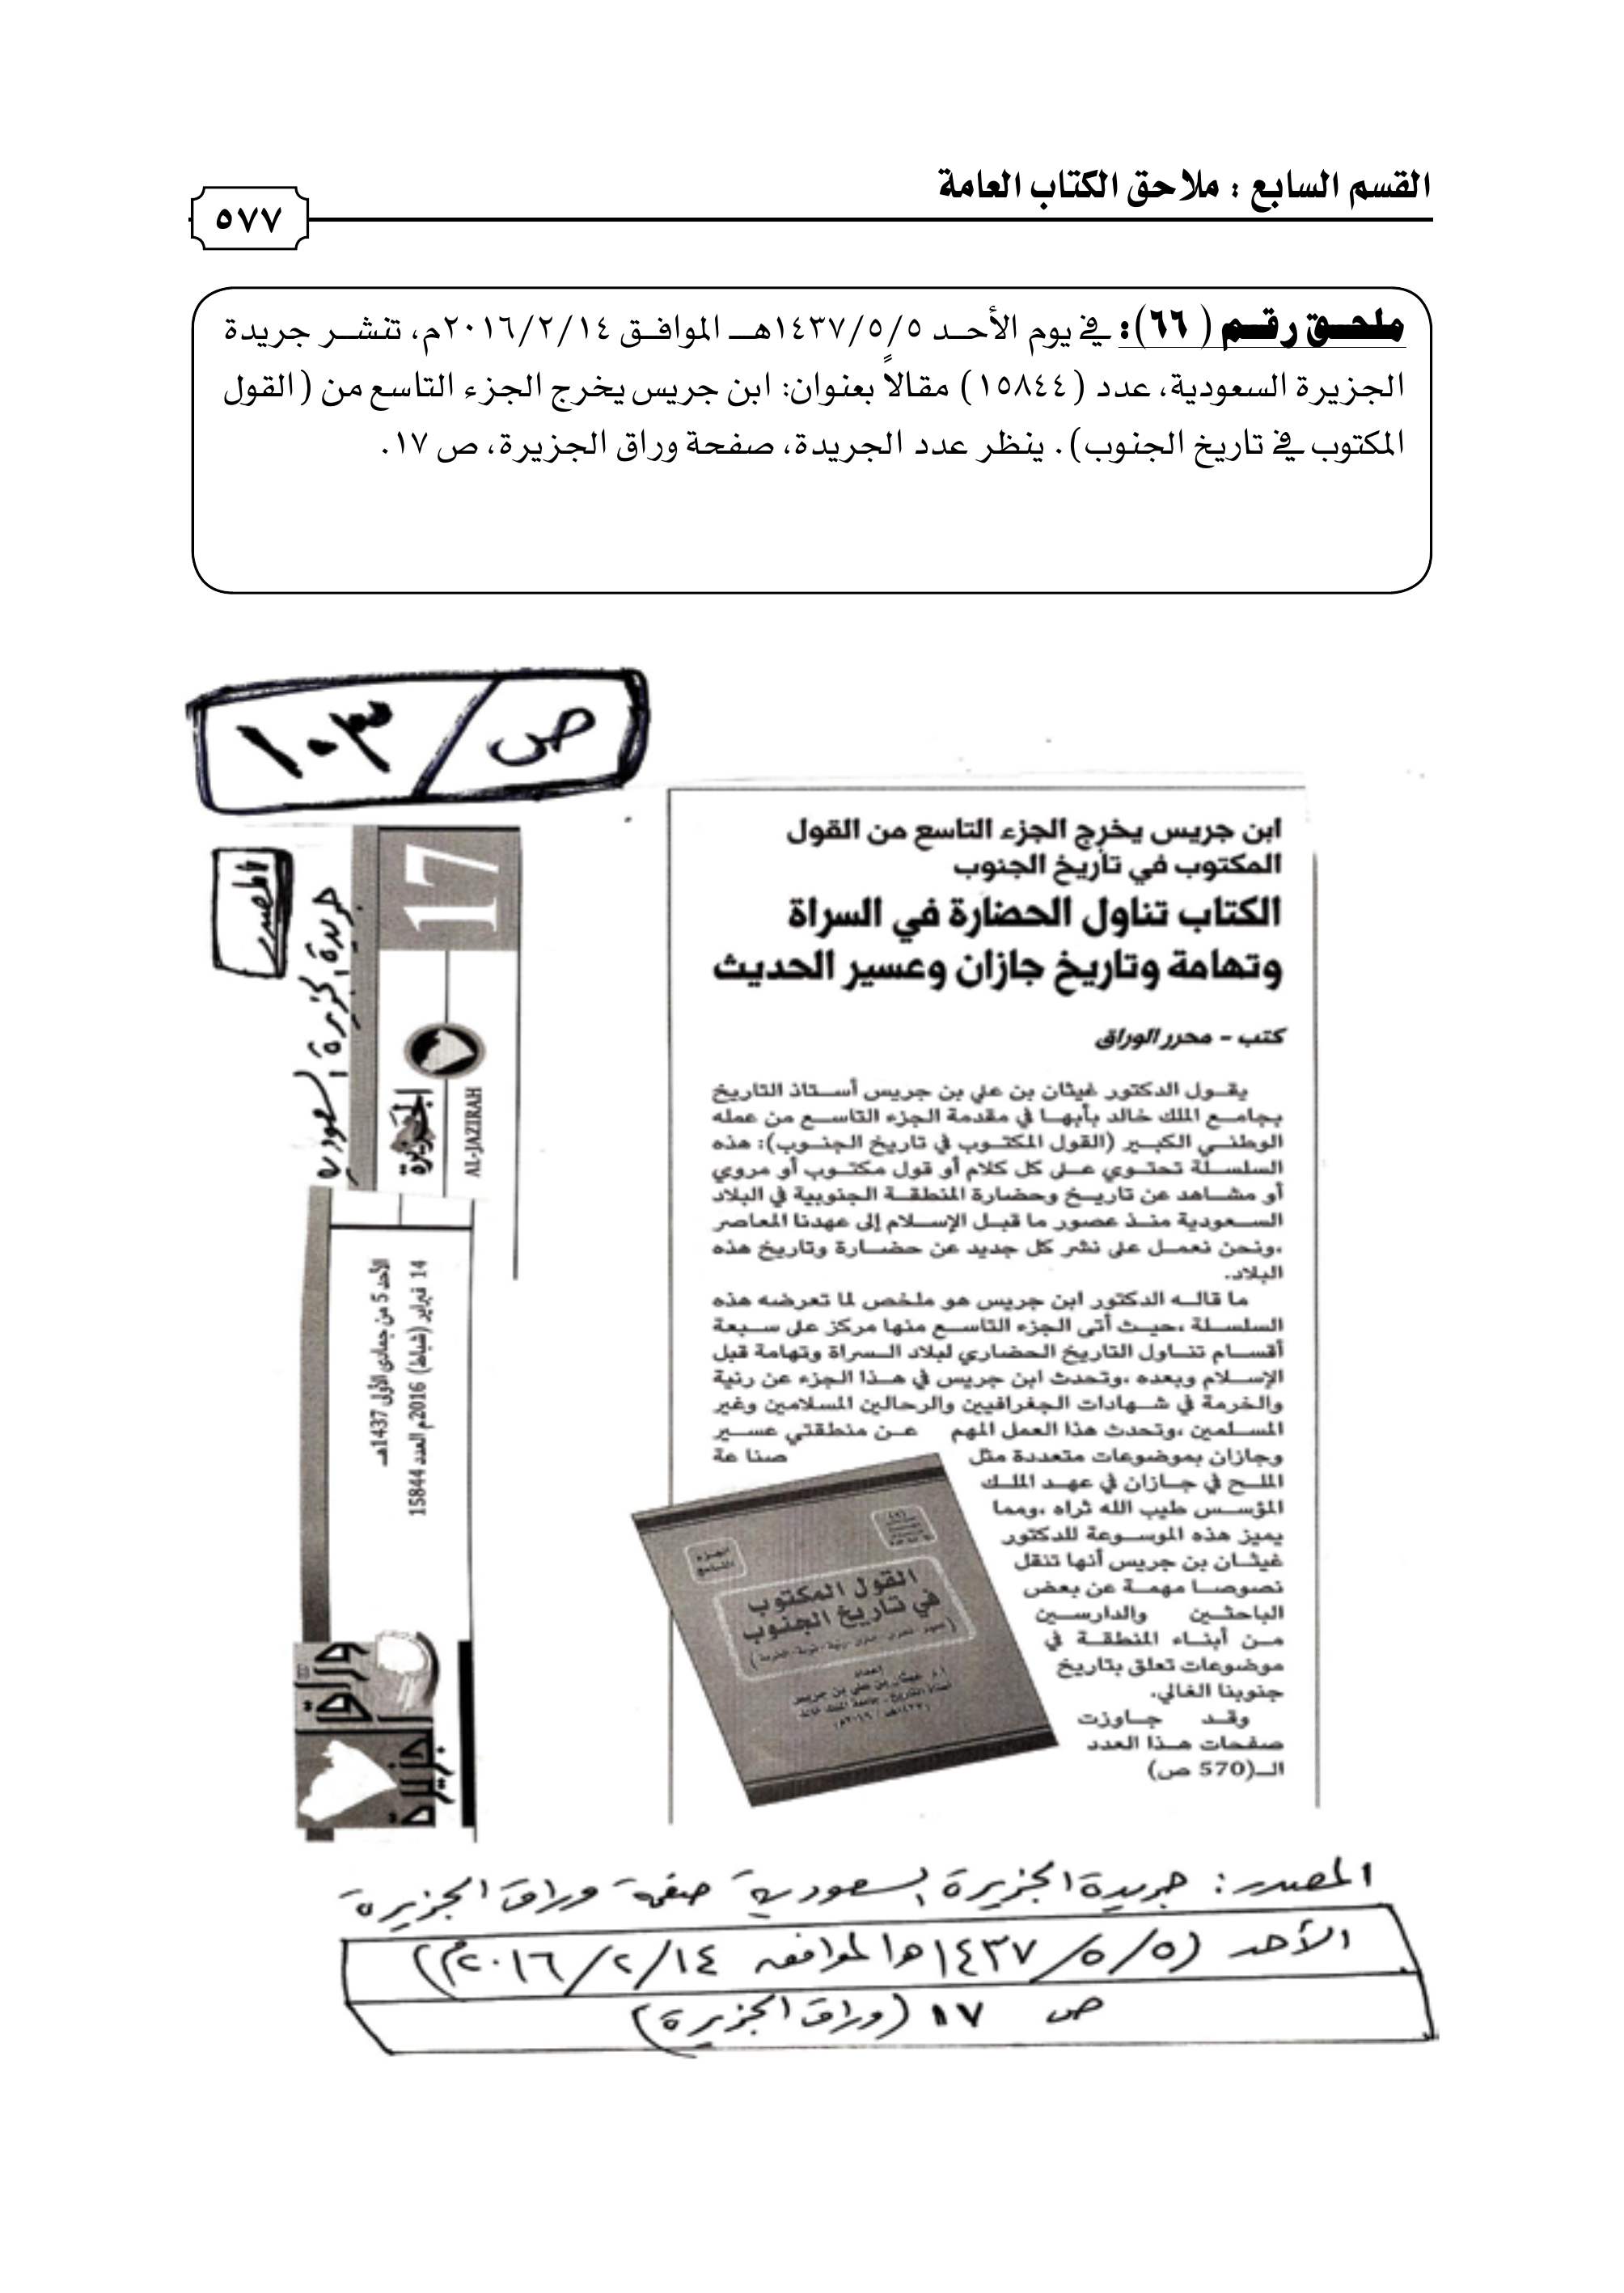 القسم السابع : ملاحق الكتاب العامة
٥٧٧
ملحق رقم (٦٦): في يوم الأحد ١٤٣٧/٥/٥هـ الموافق ٢٠١٦/٢/١٤م، تنشر جريدة
الجزيرة السعودية، عدد (١٥٨٤٤) مقالاً بعنوان: ابن جريس يخرج الجزء التاسع من (القول
المكتوب في تاريخ الجنوب). ينظر عدد الجريدة، صفحة وراق الجزيرة، ص ١٧.
ص / ١٠٣
المصدر
جريدة الجزيرة السعودية
17
الجزيرة
AL-JAZIRAH
الأحد 5 من جمادى الأولى 1437هـ
14 فبراير (شباط) 2016م العدد 15844
وراق
الجزيرة
ابن جريس يخرج الجزء التاسع من القول
المكتوب في تأريخ الجنوب
الكتاب تناول الحضارة في السراة
وتهامة وتاريخ جازان وعسير الحديث
كتب - محرر الوراق
يقول الدكتور غيثان بن علي بن جريس أستاذ التاريخ
بجامع الملك خالد بأبها في مقدمة الجزء التاسع من عمله
الوطني الكبير (القول المكتوب في تاريخ الجنوب): هذه
السلسلة تحتوي على كل كلام أو قول مكتوب أو مروي
أو مشاهد عن تاريخ وحضارة المنطقة الجنوبية في البلاد
السعودية منذ عصور ما قبل الإسلام إلى عهدنا المعاصر
،ونحن نعمل على نشر كل جديد عن حضارة وتاريخ هذه
البلاد.
ما قاله الدكتور ابن جريس هو ملخص لما تعرضه هذه
السلسلة ،حيث أتى الجزء التاسع منها مركز على سبعة
أقسام تناول التاريخ الحضاري لبلاد السراة وتهامة قبل
الإسلام وبعده ،وتحدث ابن جريس في هذا الجزء عن رنية
والخرمة في شهادات الجغرافيين والرحالين المسلامين وغير
المسلمين ،وتحدث هذا العمل المهم عن منطقتي عسير
وجازان بموضوعات متعددة مثل صناعة
الملح في جازان في عهد الملك
المؤسس طيب الله ثراه ،ومما
يميز هذه الموسوعة للدكتور
غيثان بن جريس أنها تنقل
نصوصا مهمة عن بعض
الباحثين والدارسين
من أبناء المنطقة في
موضوعات تعلق بتاريخ
جنوبنا الغالي.
وقد جاوزت
صفحات هذا العدد
الـ(570 ص)
الجزء
التاسع
القول المكتوب
في تاريخ الجنوب
إعداد
أ.د. غيثان بن علي بن جريس
أستاذ التاريخ - جامعة الملك خالد
المصدر: جريدة الجزيرة السعودية صفحة وراق الجزيرة
الأحد (١٤٣٧/٥/٥هـ الموافق ٢٠١٦/٢/١٤م)
ص ١٧ (وراق الجزيرة)